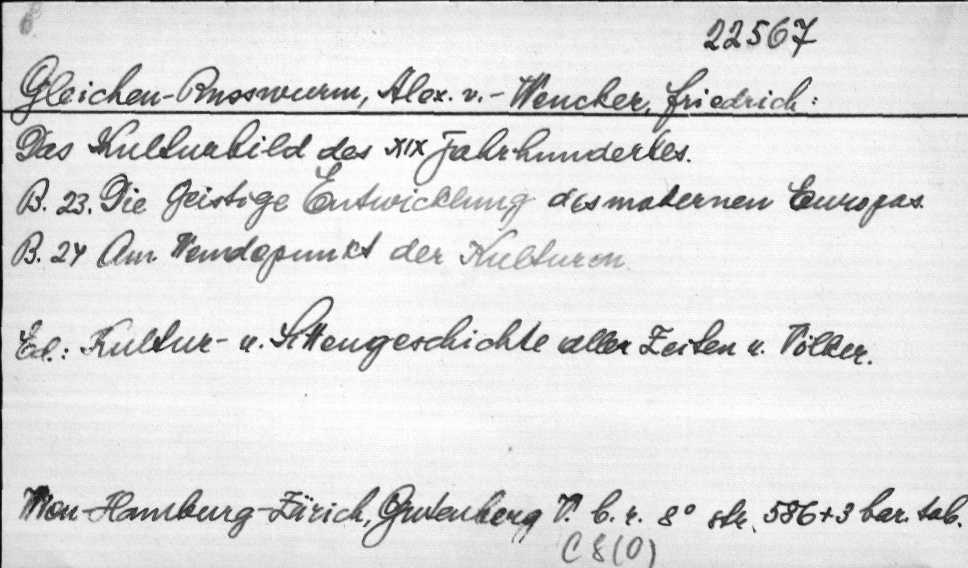 22567
Gleichen-Russwurm, Alex. v. - Wencker, Friedrich:
Das Kulturbild des XIX Jahrhundertes.
B. 23. Die Geistige Entwicklung des modernen Europas.
B. 24 Am Wendepunkt der Kulturen.
Ed.: Kultur- u. Sittengeschichte aller Zeiten u. Völker.
Wien-Hamburg-Zürich, Gutenberg V. b. r. 8° str. 586+3 bar. tab.
C 8 (0)